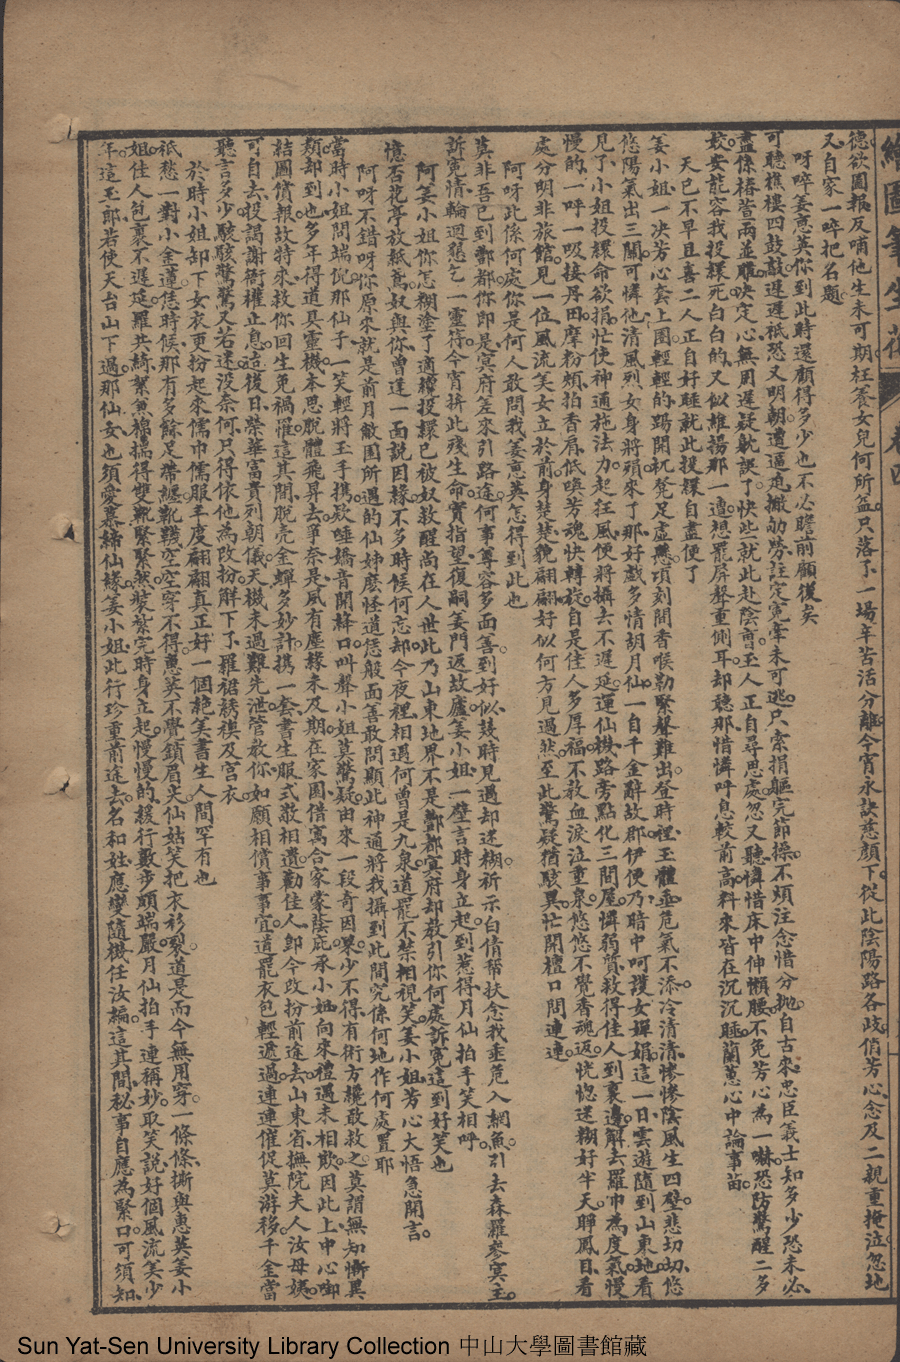 繪圖筆生花 卷四
德欲圖報反哺他生未可期枉養女兒何所益只落了一場辛苦活分離今宵永訣慈顏下從此陰陽路各歧俏芳心念及二親重掩泣忽地
又自家一啐把名題
呀啐姜惠英你到此時還顧得多少也不必瞻前顧後矣
可聽樵樓四鼓敲遲遲祗恐又明朝遭逼迫撇劬勞註定冤牽未可逃只索捐軀完節操不須注念惜分拋自古來忠臣義士知多少恐未必
盡係椿萱兩並離決定心無用遲疑躭誤了快些就此赴陰曹玉人正自尋思處忽又聽憐惜床中伸懶腰不免芳心為一嚇恐防驚醒二多
姣安能容我投繯死白白的又似維揚那一遭想罷屏聲重側耳却聽那惜憐呼息較前高料來皆在沉沉睡蘭蕙心中論事苗
天已不早且喜二人正自好睡就此投繯自盡便了
姜小姐一決芳心套上圈輕輕的踢開杌凳足虛懸項刻間香喉勒緊聲難出登時裡玉體垂危氣不添冷清清慘慘陰風生四壁悲切切悠
悠陽氣出三關可憐他清風烈女身將殞來了那好戲多情胡月仙一自千金辭故郡伊便乃暗中呵護女嬋娟這一日雲遊隨到山東地看
見了小姐投繯命欲捐忙使神通施法力起狂風便將攝去不遲延運仙機路旁點化三間屋憐弱質救得佳人到裏邊解去羅巾為度氣慢
慢的一呼一吸接丹田摩粉頰拍香肩低喚芳魂快轉旋自是佳人多厚福不教血淚泣重泉悠悠不覺香魂返恍惚迷糊好半天睜鳳目看
處分明非旅館見一位風流美女立於前身楚楚貌翩翩好似何方見過然至此驚疑猶駭異忙開檀口問連連
阿呀此係何處你是何人敢問我姜惠英怎得到此也
豈非吾已到酆都你即是冥府差來引路途何事尊容多面善到好似幾時見過却迷糊祈示白倩幫扶念我垂危入網魚引去森羅參冥主
訴冤情輪迴懇乞一靈符今宵拚此殘生命實指望復嗣姜門返故廬姜小姐一壁言時身立起到惹得月仙拍手笑相呼
阿姜小姐你怎糊塗了適纔投繯已被奴救醒尚在人世此乃山東地界不是酆都冥府却教引你何處訴冤這到好笑也
憶否花亭放紙鳶奴與你曾逢一面說因緣不多時候何忘却今夜裡相遇何曾是九泉道罷不禁相視笑姜小姐芳心大悟急開言
阿呀不錯呀你原來就是前月敝園所遇的仙姊麼怪道恁般面善敢問顯此神通將我攝到此間究係何地作何處置耶
當時小姐問端倪那仙子一笑輕將玉手攜欬唾嬌音開絳口叫聲小姐莫驚疑由來一段奇因果少不得有術方纔敢救之莫謂無知慚異
類却到也多年得道具靈機本思脫體飛昇去爭奈是風有塵緣未及期在家園借寓合家蒙蔭庇承小姐向來禮遇未相欺因此上中心啣
結圖償報故特來救你回生免禍罹這其間脫壳金蟬多妙計攜一套書生服式敬相遺勸佳人即今改扮前途去山東省撫院夫人汝母姨
可自去投謁謝衙權止息這後日榮華富貴列朝儀天機未過難先泄管教你如願相償事事宜道罷衣包輕遞過連連催促莫游移千金當
聽言多少駭駭驚驚又若迷沒奈何只得依他為改扮解下了羅裙綉襖及宮衣
於時小姐卸下女衣更扮起來儒巾儒服丰度翩翩真正好一個絕美書生人間罕有也
祇愁一對小金蓮恁時候那有多餘足帶纏靴韈空空穿不得惠英不覺鎖眉尖仙姑笑把衣衫裂道是而今無用穿一條條撕與惠英姜小
姐佳人包裹不遲延羅共綺絮兼棉揣得雙靴緊緊然裝紮完時身立起慢慢的緩行數步頗端嚴月仙拍手連稱妙取笑說好個風流美少
年這玉郎若使天台山下過那仙女也須愛慕締仙緣姜小姐此行珍重前途去名和姓應變隨機任汝編這其間秘事自應為緊口可須知
Sun Yat-Sen University Library Collection 中山大學圖書館藏